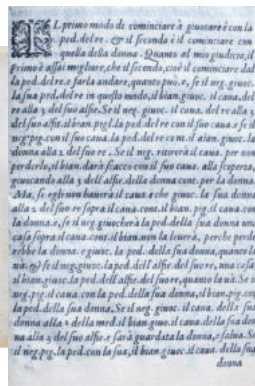 IL primo modo di cominciare à giuocare è con la
ped. del re. & il secondo è il cominciare con
quella della donna. Quanto al mio giudicio, il
primo è assai migliore, che il secondo, cioè il cominciare dal
la ped. del re, e farla andare, quanto può, e, se il neg. giuoc.
la sua ped. del re in questo modo, il bian. giuoc. il caua. del
re alla 3 del suo alfie. Se il neg. giuoc. il caua. del re alla 3
del suo alfie. il bian. pigl. la ped. del re con il suo caua. e se il
neg. pig. con il suo caua. la ped. del re cont. il bian. giuoc. la
donna alla 2 del suo re. Se il neg. ritirerà il caua. per non
perderlo, il bian. darà scacco con il suo caua. alla scoperta,
giuocando alla 3 dell'alfie. della donna cont. per la donna.
Ma, se egli non hauerà il caua. e che giuoc. la sua donna
alla 2 del suo re sopra il caua. cont. il bian. pig. il caua. con
la donna. e, se il neg. giuocherà la ped. della sua donna una
casa sopra il caua. cont. il bian. non la leuerà, perche perde
rebbe la donna. e giuoc. la ped. della sua donna, quanto la
uà. & se il neg. giuoc. la ped. dell'alfie. del suo re, una casa
il bian. giuoc. la ped. dell'alfie. del suo re, quanto la uà. Se il
neg. pig. il caua. con la ped. della sua donna, il bian. pig. con
la ped. della sua donna. Se il neg. giuoc. il caua. della sua
donna alla 2 della med. il bian. giuo. il caua. della sua don
na alla 3 del suo alfie. e sarà guardata la donna, e salua. Se
il neg. pig. la ped. con la sua, il bian. giuoc. il caua. della sua
donna